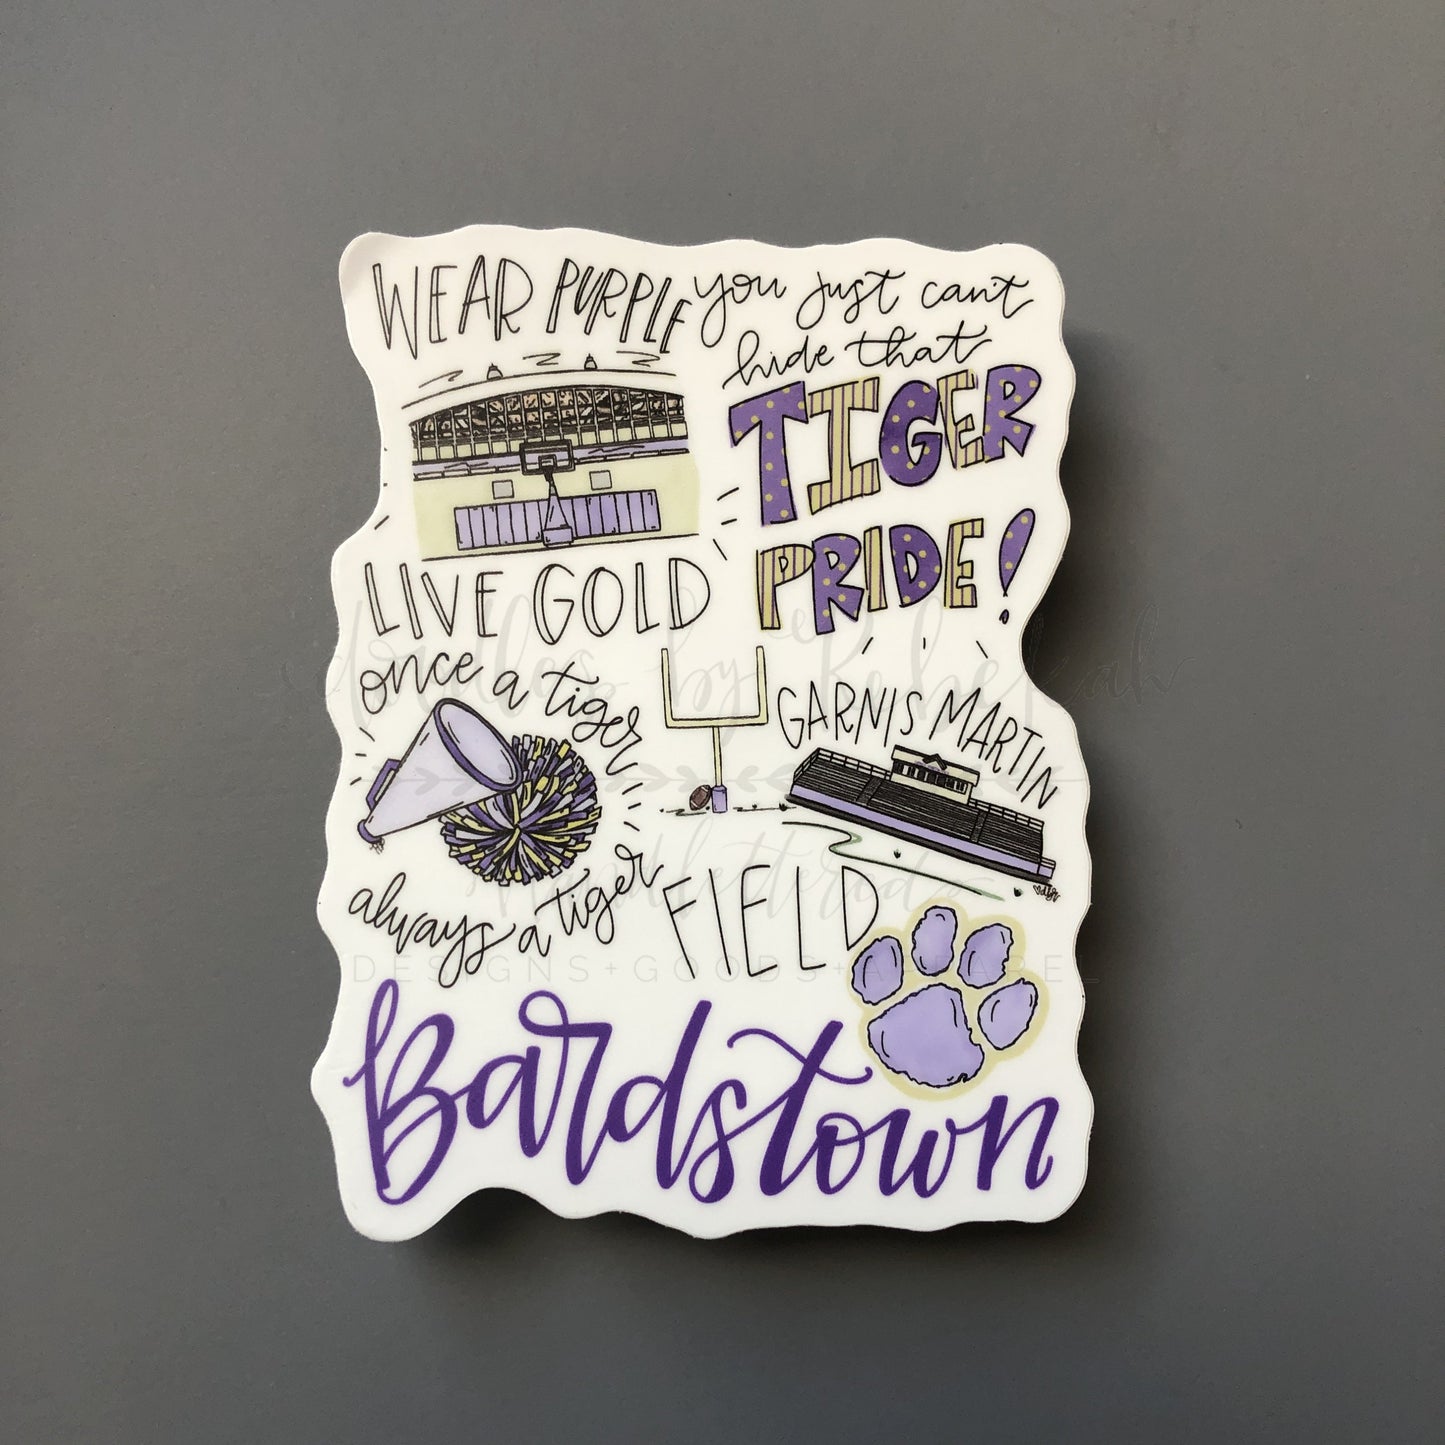 WEAR PURPLE
LIVE GOLD
you just can't
hide that
TIGER
PRIDE!
once a tiger
always a tiger
GARNIS MARTIN
FIELD
Bardstown
doodles by Rebekah
Handlettered
DESIGNS+GOODS+APPAREL